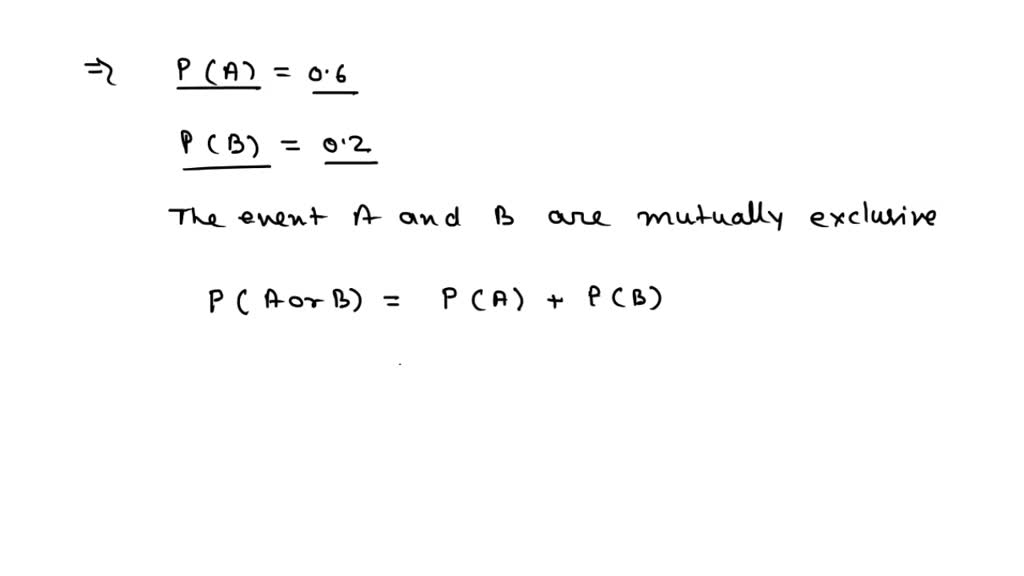 ⇒ P(A) = 0.6
P(B) = 0.2
The event A and B are mutually exclusive
P(A or B) = P(A) + P(B)